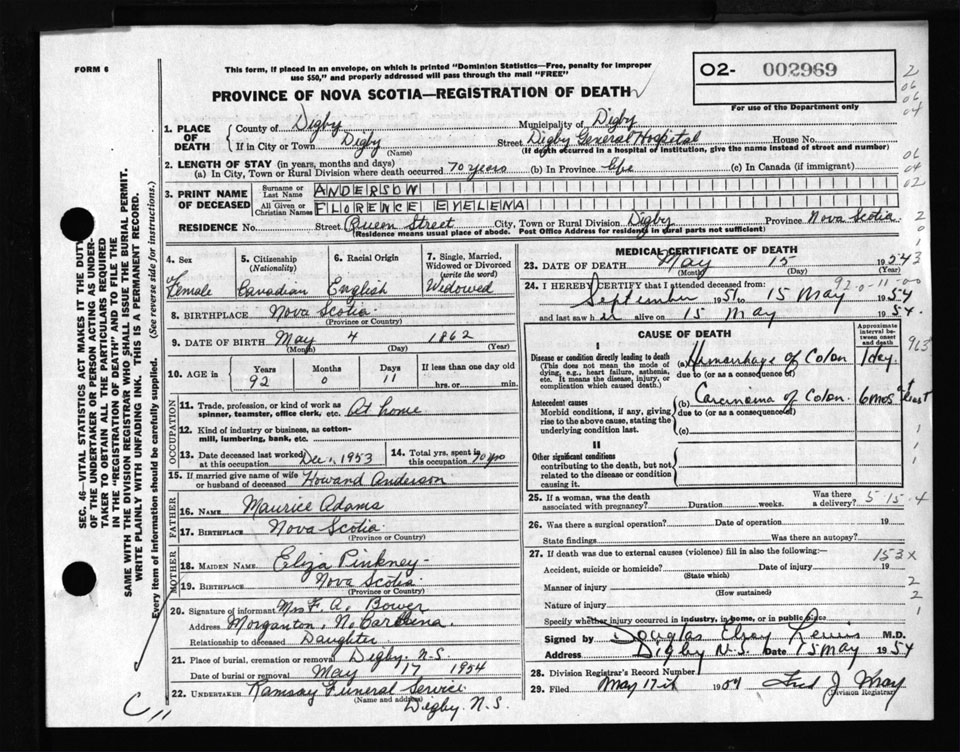 FORM 6
This form, if placed in an envelope, on which is printed "Dominion Statistics—Free, penalty for improper
use $50," and properly addressed will pass through the mail "FREE"
PROVINCE OF NOVA SCOTIA—REGISTRATION OF DEATH
02- 002969
For use of the Department only
1. PLACE OF DEATH
County of Digby Municipality of Digby
If in City or Town Digby Street Digby General Hospital House No.
(Name) (If death occurred in a hospital or institution, give the name instead of street and number)
2. LENGTH OF STAY (in years, months and days)
(a) In City, Town or Rural Division where death occurred 70 years (b) In Province life (c) In Canada (if immigrant)
3. PRINT NAME OF DECEASED
Surname or Last Name ANDERSON
All Given or Christian Names FLORENCE EVELENA
RESIDENCE No. Street Queen Street City, Town or Rural Division Digby Province Nova Scotia
(Residence means usual place of abode. Post Office Address for residents in rural parts not sufficient)
4. Sex
Female
5. Citizenship
(Nationality)
Canadian
6. Racial Origin
English
7. Single, Married,
Widowed or Divorced
(write the word)
Widowed
8. BIRTHPLACE Nova Scotia
(Province or Country)
9. DATE OF BIRTH May 4 1862
(Month) (Day) (Year)
10. AGE in
Years Months Days If less than one day old
92 0 11 hrs. or min.
OCCUPATION
11. Trade, profession, or kind of work as
spinner, teamster, office clerk, etc. At home
12. Kind of industry or business, as cotton-
mill, lumbering, bank, etc.
13. Date deceased last worked
at this occupation Dec. 1953
14. Total yrs. spent in
this occupation 70 yrs
15. If married give name of wife
or husband of deceased Howard Anderson
FATHER
16. NAME Maurice Adams
17. BIRTHPLACE Nova Scotia
(Province or Country)
MOTHER
18. MAIDEN NAME Eliza Pinkney
19. BIRTHPLACE Nova Scotia
(Province or Country)
20. Signature of informant Mrs F. A. Bower
Address Morganton, N. Carolina.
Relationship to deceased Daughter
21. Place of burial, cremation or removal Digby. N.S.
Date of burial or removal May 17 1954
22. UNDERTAKER Ramsay Funeral Service
(Name and address)
Digby. N.S.
MEDICAL CERTIFICATE OF DEATH
23. DATE OF DEATH May 15 1954
(Month) (Day) (Year)
92-0-11-00
24. I HEREBY CERTIFY that I attended deceased from:
September 1951 to 15 May 1954
and last saw her alive on 15 May 1954.
CAUSE OF DEATH
Approximate
interval be-
tween onset
and death
I
Disease or condition directly leading to death
(This does not mean the mode of
dying, e.g., heart failure, asthenia,
etc. It means the disease, injury, or
complication which caused death.)
(a) Hemorrhage of Colon 1 day.
due to (or as a consequence of)
Antecedent causes
Morbid conditions, if any, giving
rise to the above cause, stating the
underlying condition last.
(b) Carcinoma of Colon. 6 mos at least
due to (or as a consequence of)
(c)
II
Other significant conditions
contributing to the death, but not
related to the disease or condition
causing it.
25. If a woman, was the death
associated with pregnancy? Duration weeks. Was there
a delivery?
5-15-4
26. Was there a surgical operation? Date of operation 19
State findings Was there an autopsy?
27. If death was due to external causes (violence) fill in also the following:—
153X
Accident, suicide or homicide? Date of injury 19
(State which)
Manner of injury
(How sustained)
Nature of injury
Specify whether injury occurred in industry, in home, or in public place
Signed by Douglas Elroy Lewis M.D.
Address Digby N.S. Date 15 May 1954
28. Division Registrar's Record Number
29. Filed May 17th 1954 Fred J. Wray
(Division Registrar)
SEC. 46—VITAL STATISTICS ACT MAKES IT THE DUTY
OF THE UNDERTAKER OR PERSON ACTING AS UNDER-
TAKER TO OBTAIN ALL THE PARTICULARS REQUIRED
IN THE "REGISTRATION OF DEATH" AND TO FILE THE
SAME WITH THE DIVISION REGISTRAR WHO SHALL ISSUE THE BURIAL PERMIT.
WRITE PLAINLY WITH UNFADING INK. THIS IS A PERMANENT RECORD.
Every item of information should be carefully supplied. (See reverse side for instructions.)